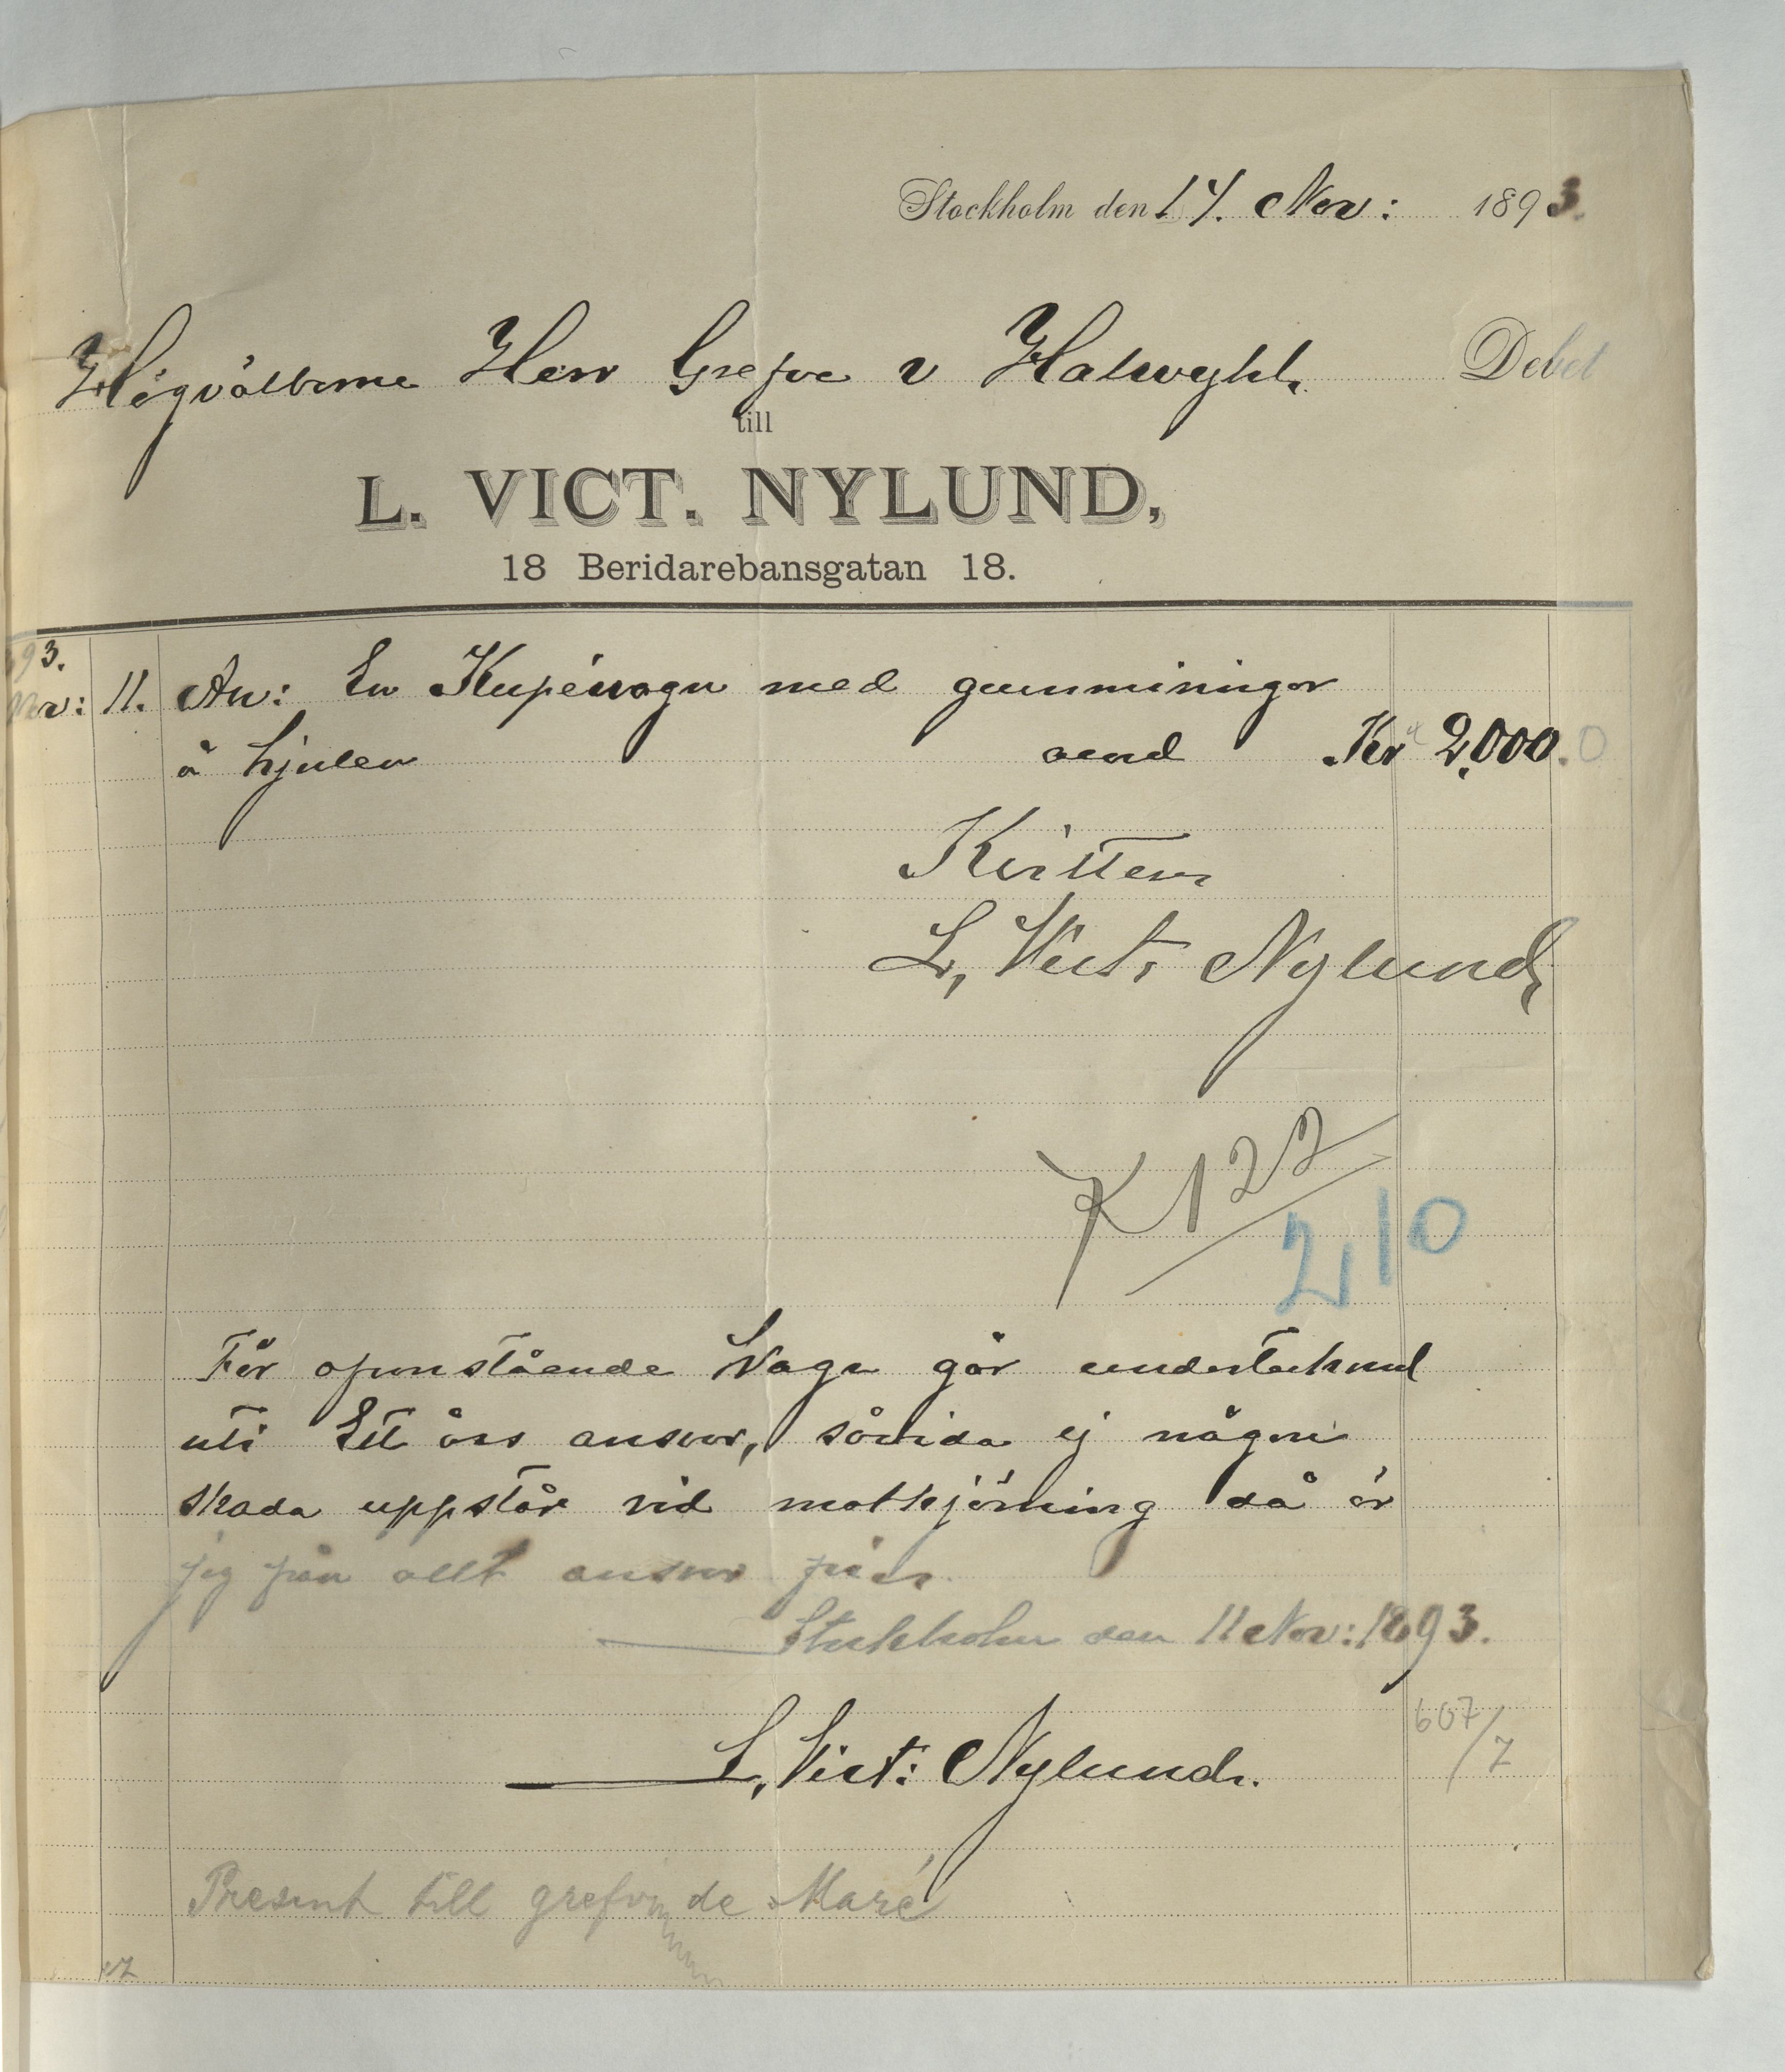 Stockholm den 14. Nov: 1893.
Högvälborne Herr Grefve v Halwyhl, Debet
till
L. VICT. NYLUND,
18 Beridarebansgatan 18.
93.
Nov: 11. An: En Kupévagn med gummiringar
å hjulen Kr 2,000.0
Kvitteras
L, Vict, Nylund
K 122
210
För ofvanstående Vagn går undertecknad
uti Ett års ansvar, såvida ej någon
skada uppstår vid motkjörning då är
jig från allt ansvar fri
Stockholm den 11 Nov: 1893.
607/7
L, Vict: Nylund.
Present till grefvin de Maré